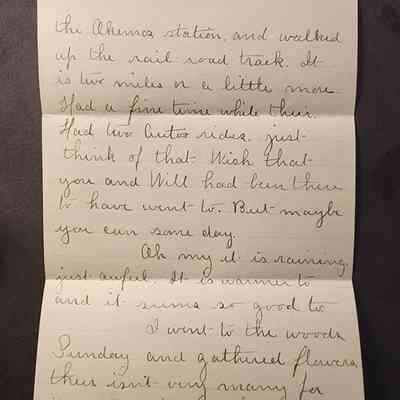 the Akemos station, and walked
up the rail road track. It
is two miles or a little more.
Had a fine time while their.
Had two autos rides. just
think of that. Wish that
you and Will had been there
to have went to. But maybe
you can some day.
Oh my it is raining
just awful. It is warmer to
and it seems so good to
I went to the woods
Sunday and gathered flowers
their isn't very many for